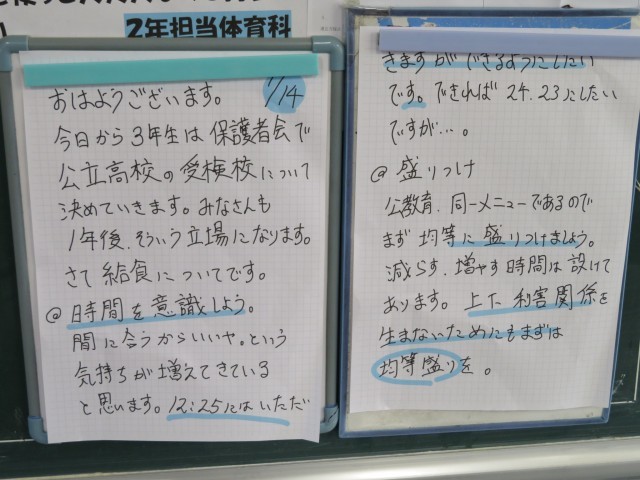 2年担当体育科
1/14
おはようございます。
今日から3年生は保護者会で
公立高校の受検校について
決めていきます。みなさんも
1年後、そういう立場になります。
さて給食についてです。
@ 時間を意識しよう。
間に合うからいいや。という
気持ちが増えてきている
と思います。12:25にはいただ
きますができるようにしたい
です。できれば24.23にしたい
ですが…。
@ 盛りつけ
公教育、同一メニューであるので
まず均等に盛りつけましょう。
減らす、増やす時間は設けて
あります。上下、利害関係を
生まないためにもまずは
均等盛りを。